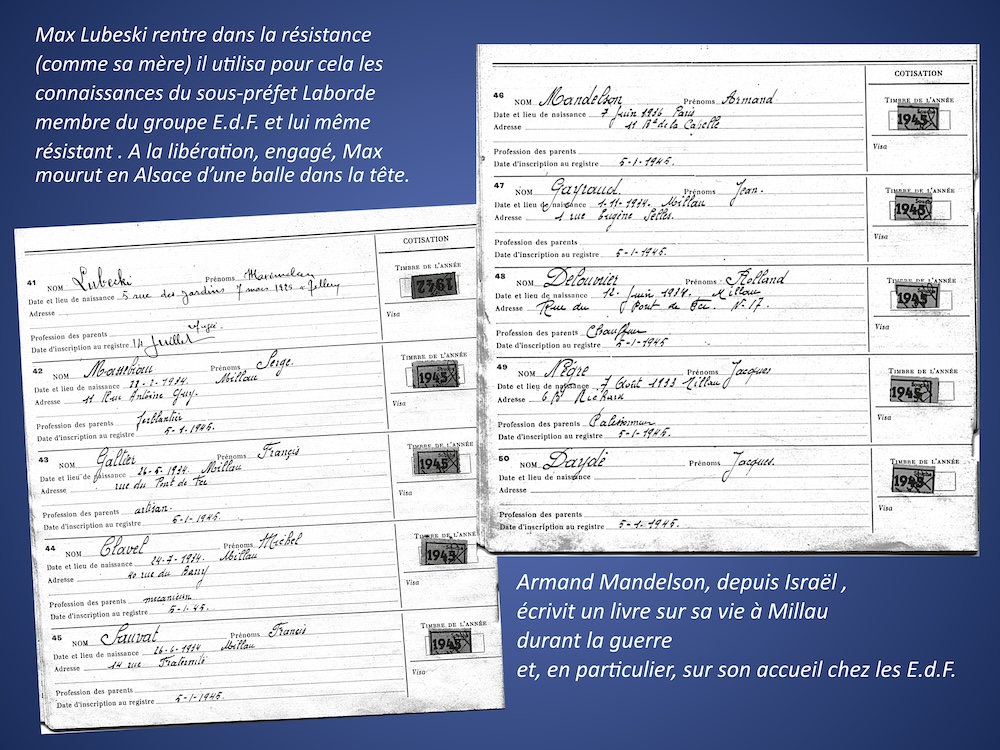 Max Lubeski rentre dans la résistance
(comme sa mère) il utilisa pour cela les
connaissances du sous-préfet Laborde
membre du groupe E.d.F. et lui même
résistant . A la libération, engagé, Max
mourut en Alsace d’une balle dans la tête.
COTISATION
41 NOM Lubecki Prénoms
TIMBRE DE L'ANNÉE
Date et lieu de naissance 5 rue des Jardins 7 mars 1925
Adresse
Visa
Profession des parents
Date d'inscription au registre 14 Juillet
42 NOM Prénoms Serge.
TIMBRE DE L'ANNÉE
1945
Date et lieu de naissance 1934. Millau
Adresse 11 Rue Antoine Guy.
Visa
Profession des parents ferblantier
Date d'inscription au registre 5-1-1945.
43 NOM Galtier Prénoms Francis
TIMBRE DE L'ANNÉE
1945
Date et lieu de naissance 26-5-1934. Millau
Adresse rue du Pont de Fer
Visa
Profession des parents artisan.
Date d'inscription au registre 5-1-1945.
44 NOM Clavel Prénoms Michel
TIMBRE DE L'ANNÉE
1945
Date et lieu de naissance 24-7-1934. Millau
Adresse rue du Barry
Visa
Profession des parents mecanicien
Date d'inscription au registre 5-1-45.
45 NOM Sauvat Prénoms Francis
TIMBRE DE L'ANNÉE
1945
Date et lieu de naissance 26-6-1934 Millau
Adresse 14 rue Fraternité
Visa
Profession des parents
Date d'inscription au registre 5-1-1945.
COTISATION
46 NOM Mandelson Prénoms Armand
TIMBRE DE L'ANNÉE
1945
Date et lieu de naissance 7 Juin 1936 Paris
Adresse 11 Bd de la Capelle
Visa
Profession des parents
Date d'inscription au registre 5-1-1945.
47 NOM Gayraud. Prénoms Jean.
TIMBRE DE L'ANNÉE
1945
Date et lieu de naissance 1-11-1934. Millau
Adresse 1 rue Eugène Selles.
Visa
Profession des parents
Date d'inscription au registre 5-1-1945.
48 NOM Delouvrier Prénoms Rolland
TIMBRE DE L'ANNÉE
1945
Date et lieu de naissance 12. Juin 1934. Millau
Adresse Rue du Pont de Fer. N° 17.
Visa
Profession des parents Chauffeur
Date d'inscription au registre 5-1-1945
49 NOM Nègre Prénoms Jacques
TIMBRE DE L'ANNÉE
1945
Date et lieu de naissance 7 Août 1933 Millau
Adresse 6 Bd Richard
Visa
Profession des parents
Date d'inscription au registre 5-1-1945.
50 NOM Daydé Prénoms Jacques.
TIMBRE DE L'ANNÉE
1945
Date et lieu de naissance
Adresse
Visa
Profession des parents
Date d'inscription au registre 5-1-1945.
Armand Mandelson, depuis Israël ,
écrivit un livre sur sa vie à Millau
durant la guerre
et, en particulier, sur son accueil chez les E.d.F.